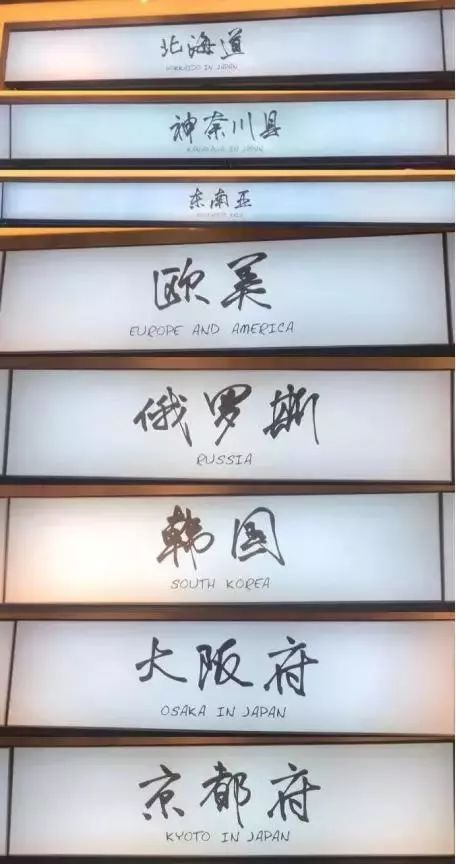 北海道
HOKKAIDO IN JAPAN
神奈川县
KANAGAWA IN JAPAN
东南亚
欧美
EUROPE AND AMERICA
俄罗斯
RUSSIA
韩国
SOUTH KOREA
大阪府
OSAKA IN JAPAN
京都府
KYOTO IN JAPAN